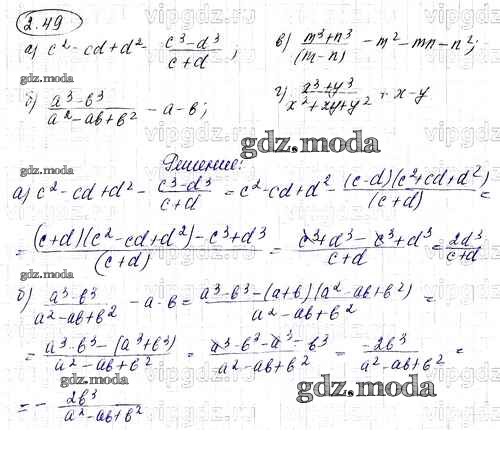 2.49
а) c² - cd + d² - (c³ - d³)/(c + d);
в) (m³ + n³)/(m - n) - m² - mn - n²;
б) (a³ - b³)/(a² - ab + b²) - a - b;
г) (x³ + y³)/(x² + xy + y²) + x - y
gdz.moda
Решение:
а) c² - cd + d² - (c³ - d³)/(c + d) = c² - cd + d² - (c - d)(c² + cd + d²)/(c + d) =
gdz.moda
= ((c + d)(c² - cd + d²) - c³ + d³)/(c + d) = (c³ + d³ - c³ + d³)/(c + d) = 2d³/(c + d)
gdz.moda
б) (a³ - b³)/(a² - ab + b²) - a - b = (a³ - b³ - (a + b)(a² - ab + b²))/(a² - ab + b²) =
= (a³ - b³ - (a³ + b³))/(a² - ab + b²) = (a³ - b³ - a³ - b³)/(a² - ab + b²) = -2b³/(a² - ab + b²) =
gdz.moda
gdz.moda
= - 2b³/(a² - ab + b²)